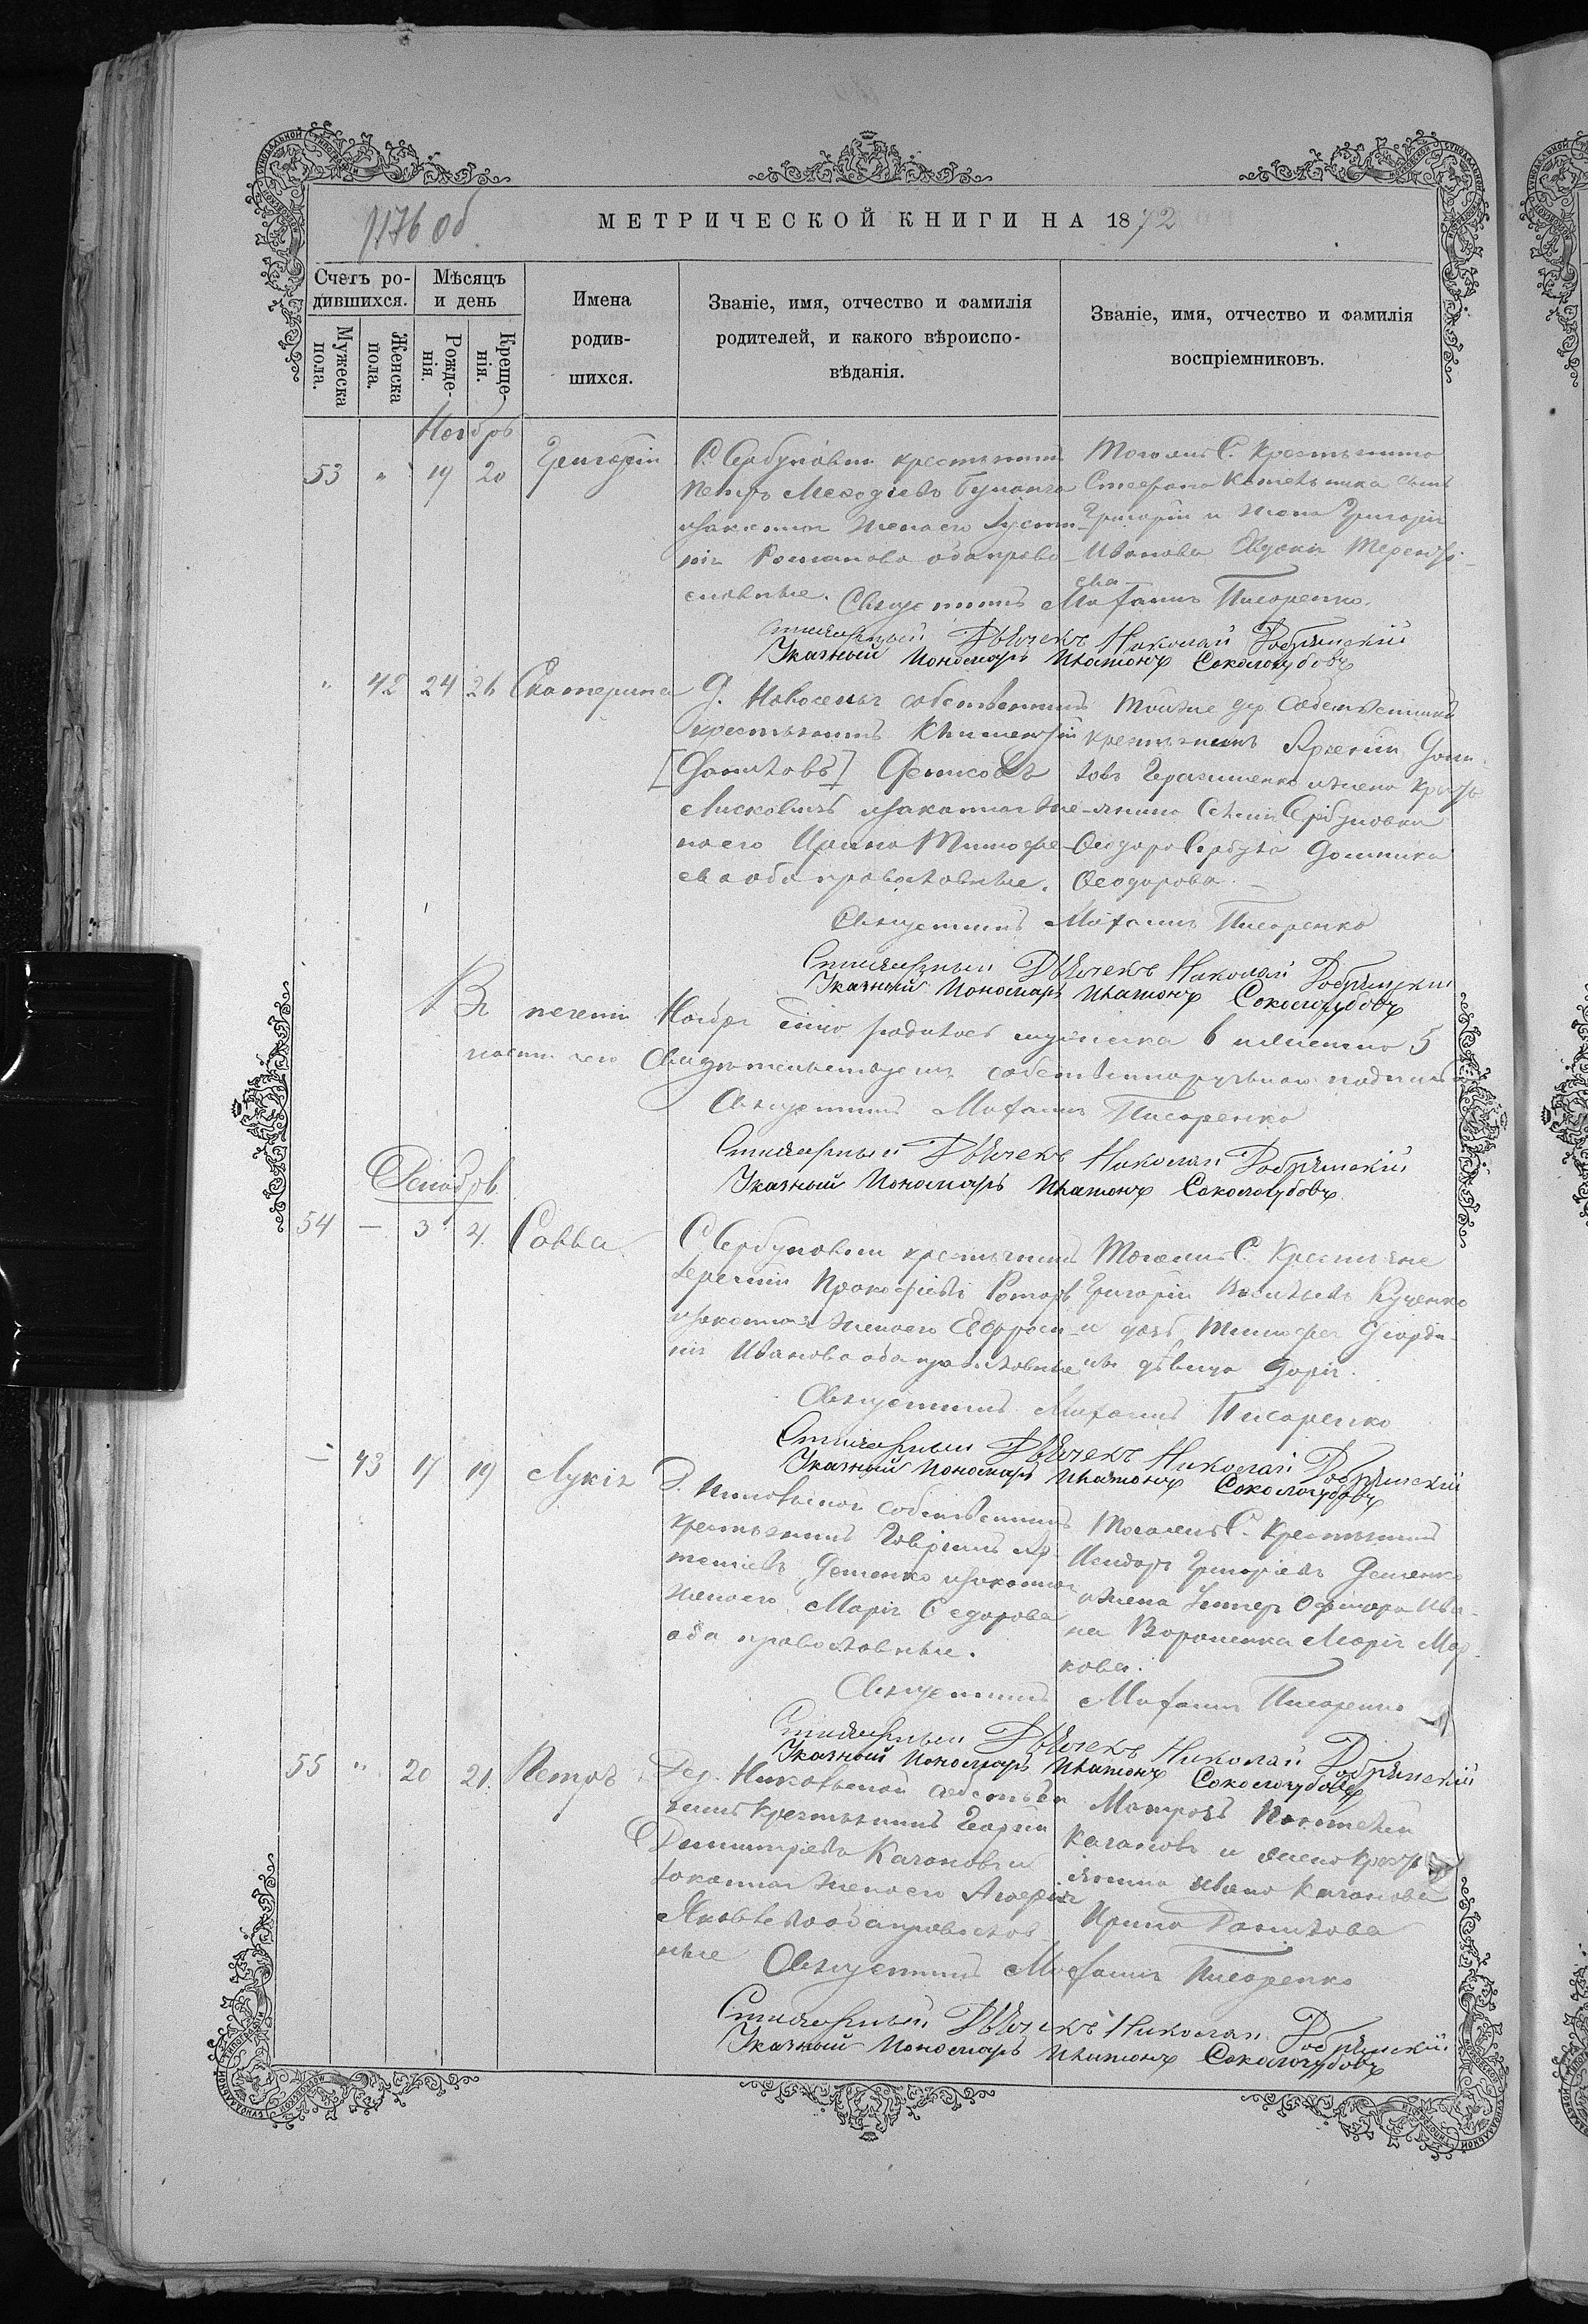 1176 об
МЕТРИЧЕСКОЙ КНИГИ НА 1872
Счетъ ро-
дившихся.
Мужеска
пола.
Женска
пола.
Мѣсяцъ
и день
Рожде-
нія.
Креще-
нія.
Имена
родив-
шихся.
Званіе, имя, отчество и фамилія
родителей, и какого вѣроиспо-
вѣданія.
Званіе, имя, отчество и фамилія
воспріемниковъ.
Ноябрь
53 " 19 20 Григорій
С. Сербуловки крестьянинъ
Петръ Меѳодіевъ
и законная жена его Густи-
нія Романова оба право-
славные.
Тогоже С. Крестьянина
Стефана Котельника сынъ
Григорій и жена Григорія
Иванова Евдокія Теренті-
ева
Священникъ Мафаилъ Писаренко.
Стихарный Дьячекъ Николай Добрянскій
Указный Пономарь Платонъ Сокологубовъ
" 42 24 26 Екатерина
Д. Новоселья собственникъ
крестьянинъ Климентій
[Даниловъ] Денисовъ
Лисковичъ и законная же-
на его Ирина Тимофе-
ева оба православные.
Тойже дер. Собственникъ
крестьянинъ Арсеній Дани-
ловъ Герасименко и жена Кресть-
янина Села Сербуловки
Ѳеодора Сербула Домника
Ѳеодорова
Священникъ Мафаилъ Писаренко
Стихарный Дьячекъ Николай Добрянскій
Указный Пономарь Платонъ Сокологубовъ
Въ теченіи Ноября сего родилось мужеска 6 и женска 5
въ чемъ Свидѣтельствуемъ собственноручною подписью
Священникъ Мафаилъ Писаренко
Стихарный Дьячекъ Николай Добрянскій
Указный Пономарь Платонъ Сокологубовъ
Декабрь
54 — 3 4. Савва
С. Сербуловки крестьянинъ
Іеремій Прокофіевъ Ротарь
и законная жена его Евфроси-
нія Иванова оба православные
Тогоже С. Крестьяне
Григорій Васильевъ Куценко
и дочь Тимофея Діорди-
цы дѣвица Дарія.
Священникъ Мафаилъ Писаренко
Стихарный Дьячекъ Николай Добрянскій
Указный Пономарь Платонъ Сокологубовъ
— 43 17 19 Лукія
Д. собственникъ
крестьянинъ Гавріилъ Ар-
темьевъ Деменко и законная
жена его Марія Ѳедорова
оба православные.
Тогоже С. Крестьянинъ
Исидоръ Григорьевъ Деменко
и жена Унтер Офицера Ива-
на Вороненка Марія Мар-
кова.
Священникъ Мафаилъ Писаренко
Стихарный Дьячекъ Николай Добрянскій
Указный Пономарь Платонъ Сокологубовъ
55 " 20 21. Петръ
Дер. собствен-
никъ Крестьянинъ Георгій
Димитріевъ Качановъ и
законная жена его Агафія
Яковлева оба православ-
ные
Матросъ Пантелей
Качановъ и жена Кресть-
янина Ивана Качанова
Ирина Данилова
Священникъ Мафаилъ Писаренко
Стихарный Дьячекъ Николай Добрянскій
Указный Пономарь Платонъ Сокологубовъ